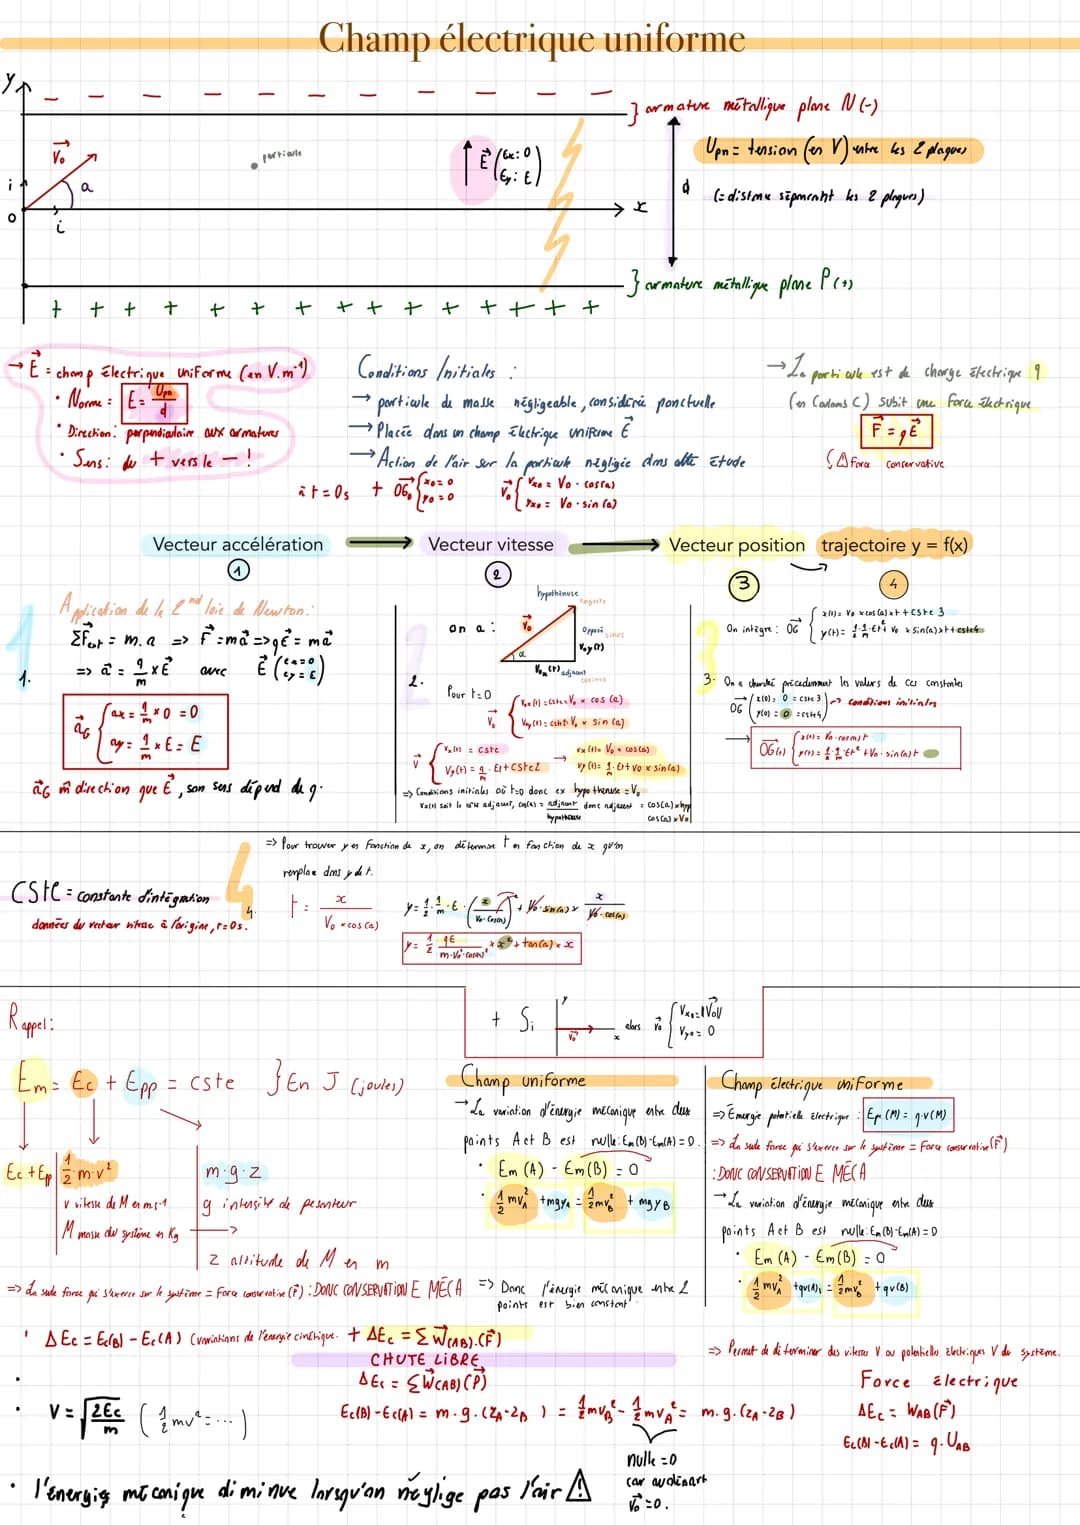 Champ électrique uniforme
y
− − − − − − − − − − − − −
} armature métallique plane N (-)
V₀
particule
E (Ex: 0
Ey: E)
Upn = tension (en V) entre les 2 plaques
d
(= distance séparant les 2 plaques)
i
a
o
i
x
} armature métallique plane P (+)
+ + + + + + + + + + + + + + +
→ E = champ électrique uniforme (en V.m⁻¹)
• Norme : E = Upn / d
• Direction : perpendiculaire aux armatures
• Sens : du + vers le − !
Conditions Initiales :
→ particule de masse négligeable, considérée ponctuelle
→ Placée dans un champ électrique uniforme E
→ Action de l'air sur la particule négligée dans cette étude
à t = 0s + OG₀ { x₀ = 0
y₀ = 0
V₀ { Vx₀ = V₀ · cos(a)
Yx₀ = V₀ · sin (a)
→ La particule est de charge électrique q
(en Couloms C) subit une force électrique
F = qE
⚠ Force conservative
Vecteur accélération → Vecteur vitesse → Vecteur position trajectoire y = f(x)
1 2 3 4
1
Application de la 2nd loie de Newton :
ΣFext = m.a => F = ma => qE = ma
1. => a = q/m × E avec E (Ex = 0
Ey = E)
aG { ax = 1/m × 0 = 0
ay = 1/m × E = E
aG m̂ direction que E, son sens dépend de q.
2
on a :
hypothénuse
tangente
V₀
Opposé
sinus
Vo y(t)
α
Vox (t) adjacent
cosinus
2.
Pour t=0
V₀ { Vox (t) = cste = V₀ × cos (a)
Voy (t) = cste: V₀ × sin (a)
V { Vx (t) = cste
Vy (t) = q/m · Et + cste2
→ vx (t) = V₀ × cos (a)
vy (t) = 1/m · Et + V₀ × sin(a)
=> Conditions initiales où t=0 donc ex hypothénuse = V₀
Vx(t) soit le côté adjacent, cos(a) = adjacent / hypothénuse donc adjacent = cos(a) × hyp
cos(a) × V₀
3
On intègre : OG { x(t) = V₀ × cos (a) × t + cste 3
y(t) = 1/2 · 1/m · Et² + V₀ × sin(a) × t + cste4
3. On a cherché précédemment les valeurs de ces constantes
OG { x(0) = 0 = cste 3
y(0) = 0 = cste4 → conditions initiales
→ OG(t) { x(t) = V₀ · cos(a) t
y(t) = 1/2 · 1/m · Et² + V₀ · sin(a) t
=> Pour trouver y en fonction de x, on détermine t en fonction de x qu'on
remplace dans y de t.
CSte = constante d'intégration
données du vecteur vitesse à l'origine, t=0s.
4
4.
t = x / V₀ × cos (a)
y = 1/2 · 1/m · E · (x / V₀ · cos(a))² + V₀ · sin(a) × x / V₀ · cos(a)
y = 1/2 qE / m · V₀² · cos(a)² × x² + tan(a) × x
+ Si
y
V₀
x
alors V₀ { Vx₀ = ||V₀||
Vy₀ = 0
Rappel :
Em = Ec + Epp = cste } En J (joules)
Ec + Epp
1/2 m · v²
v vitesse de M en m.s-1
M masse du système en Kg
m · g · z
g intensité de pesanteur
z altitude de M en m
=> La seule force qui s'exerce sur le système = Force conservative (F) : DONC CONSERVATION E MÉCA
Champ uniforme
→ La variation d'énergie mécanique entre deux
points A et B est nulle : Em (B) - Em(A) = 0.
• Em (A) − Em (B) = 0
• 1/2 mvA² + mgyA = 1/2 mvB² + mgyB
=> Donc l'énergie mécanique entre 2
points est bien constant
Champ électrique uniforme
=> Énergie potentielle électrique : Ep (M) = q·v(M)
=> La seule force qui s'exerce sur le système = Force conservative (F)
: DONC CONSERVATION E MÉCA
→ La variation d'énergie mécanique entre deux
points A et B est nulle : Em (B) - Em(A) = 0
• Em (A) − Em (B) = 0
• 1/2 mvA² + qv(A) = 1/2 mvB² + qv(B)
=> Permet de déterminer des vitesses V ou potentiels électriques V du système.
' ΔEc = Ec(B) − Ec(A) (variations de l'énergie cinétique. + ΔEc = ΣW(AB).(F)
CHUTE LIBRE
ΔEc = ΣW(AB) (P)
• V = √(2Ec / m) ( 1/2 mv² = ... )
Ec(B) − Ec(A) = m · g · (zA − zB ) = 1/2 mvB² − 1/2 mvA² = m.g.(zA − zB )
nulle = 0
car au départ
V₀ = 0.
Force électrique
ΔEc = WAB (F)
Ec(B) − Ec(A) = q · UAB
• l'énergies mécanique diminue lorsqu'on néglige pas l'air ⚠